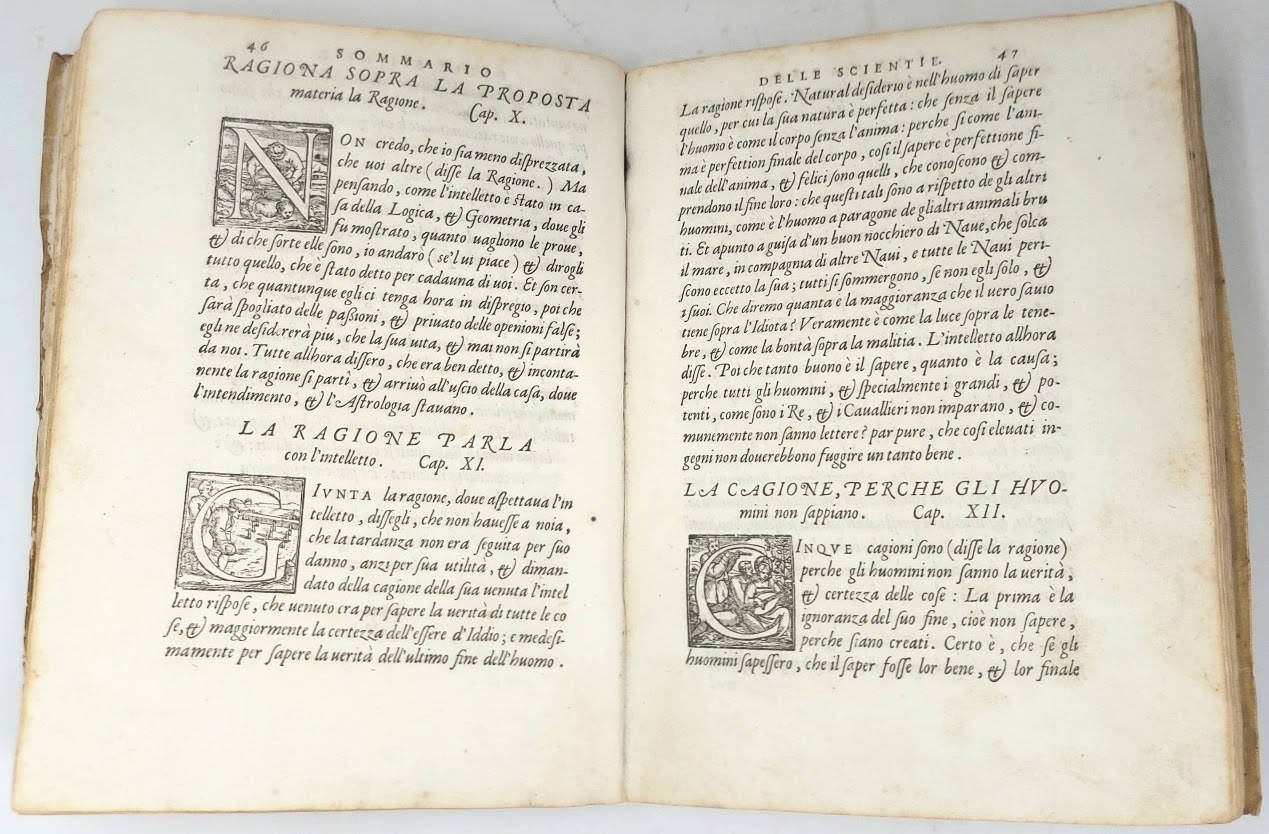 46
SOMMARIO
RAGIONA SOPRA LA PROPOSTA
materia la Ragione. Cap. X.
NON credo, che io sia meno disprezzata,
che uoi altre (disse la Ragione.) Ma
pensando, come l'intelletto è stato in ca-
sa della Logica, & Geometria, doue gli
fu mostrato, quanto uagliono le proue,
& di che sorte elle sono, io andarò (se'l ui piace) & dirogli
tutto quello, che è stato detto per cadauna di uoi. Et son cer-
ta, che quantunque egli ci tenga hora in dispregio, poi che
sarà spogliato delle passioni, & priuato delle openioni false;
egli ne desidererà piu, che la sua uita, & mai non si partirà
da noi. Tutte allhora dissero, che era ben detto, & inconta-
nente la ragione si partì, & arriuò all'uscio della casa, doue
l'intendimento, & l'Astrologia stauano.
LA RAGIONE PARLA
con l'intelletto. Cap. XI.
GIVNTA la ragione, doue aspettaua l'in
telletto, dissegli, che non hauesse a noia,
che la tardanza non era seguita per suo
danno, anzi per sua utilità, & diman-
dato della cagione della sua uenuta l'intel
letto rispose, che uenuto era per sapere la uerità di tutte le co
se, & maggiormente la certezza dell'essere d'Iddio; e medesi-
mamente per sapere la uerità dell'ultimo fine dell'huomo.
DELLE SCIENTIE.
47
La ragione rispose. Natural desiderio è nell'huomo di saper
quello, per cui la sua natura è perfetta: che senza il sapere
l'huomo è come il corpo senza l'anima: perche si come l'ani-
ma è perfettion finale del corpo, cosi il sapere è perfettione fi-
nale dell'anima, & felici sono quelli, che conoscono & com-
prendono il fine loro: che questi tali sono a rispetto de gli altri
huomini, come è l'huomo a paragone de gli altri animali bru
ti. Et apunto a guisa d'un buon nocchiero di Naue, che solca
il mare, in compagnia di altre Naui, e tutte le Naui peri-
scono eccetto la sua; tutti si sommergono, se non egli solo, &
i suoi. Che diremo quanta è la maggioranza che il uero sauio
tiene sopra l'Idiota? Veramente è come la luce sopra le tene-
bre, & come la bontà sopra la malitia. L'intelletto allhora
disse. Poi che tanto buono è il sapere, quanto è la causa;
perche tutti gli huomini, & spetialmente i grandi, & po-
tenti, come sono i Re, & i Cauallieri non imparano, & co-
munemente non sanno lettere? par pure, che cosi eleuati in-
gegni non douerebbono fuggire un tanto bene.
LA CAGIONE, PERCHE GLI HVO-
mini non sappiano. Cap. XII.
CINQVE cagioni sono (disse la ragione)
perche gli huomini non sanno la uerità,
& certezza delle cose: La prima è la
ignoranza del suo fine, cioè non sapere,
perche siano creati. Certo è, che se gli
huomini sapessero, che il saper fosse lor bene, & lor finale